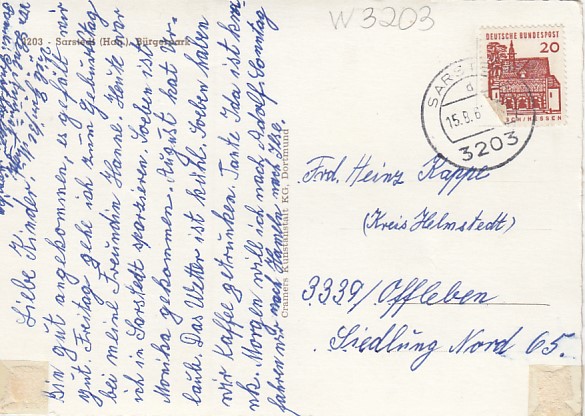 W3203
3203 - Sarstedt (Han.), Bürgerpark
DEUTSCHE BUNDESPOST
20
SARSTEDT
15.8.6
3203
Cramers Kunstanstalt KG, Dortmund
Frd. Heinz Kappe
(Kreis Helmstedt)
3339/Offleben
Siedlung Nord 65.
Liebe Kinder!
Bin gut angekommen, es gefällt mir
gut. Freitag gehe ich zum Geburtstag
bei meine Freundin Hanne. Heute war
ich in Sarstedt spazieren. Soeben ist
Monika gekommen. August hat Ur-
laub. Das Wetter ist kühl. Soeben haben
wir Kaffee getrunken. Tante Ida ist
Morgen will ich nach Adolf. Sonntag
fahren wir nach Hameln